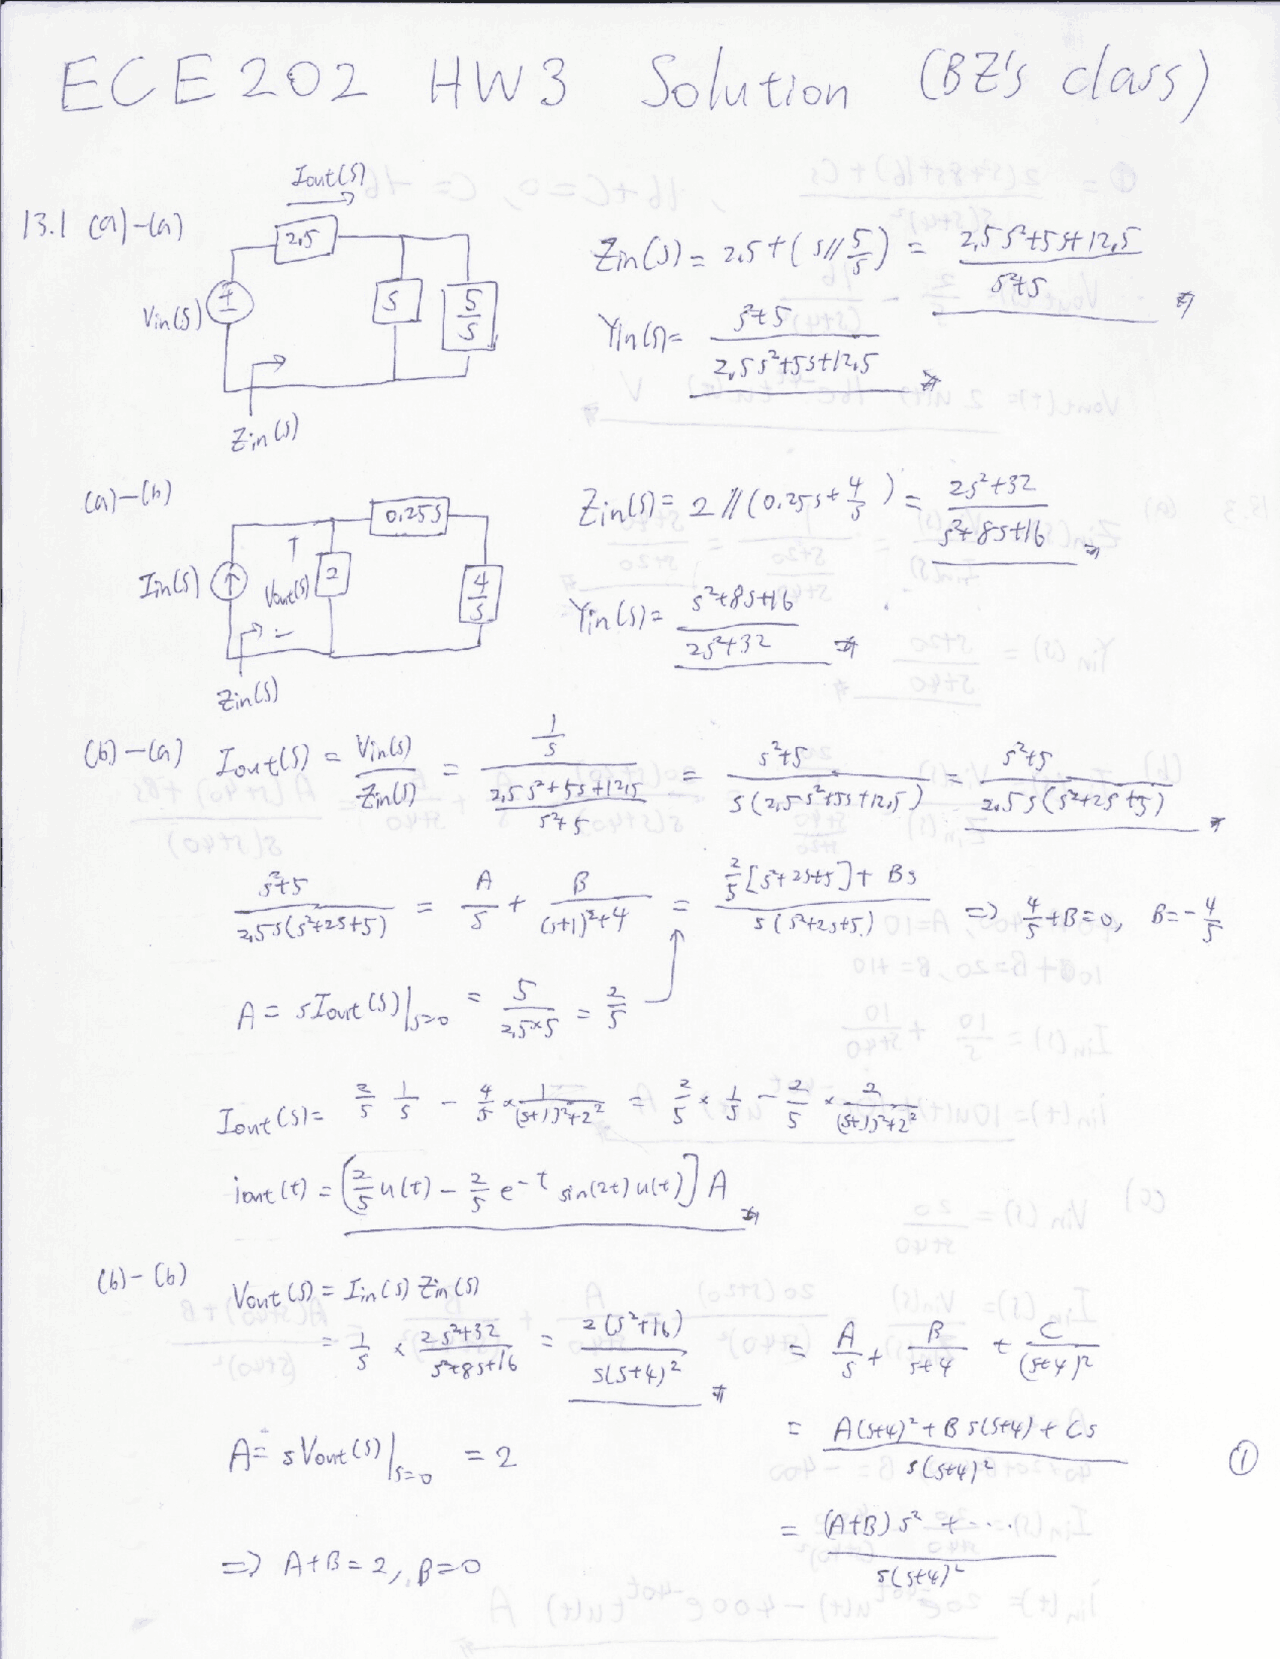 ECE202 HW3 Solution (BZ's class)
13.1 (a)-(a)
Iout(s)
2.5
Vin(s)
+
-
s
5/s
Zin(s)
Zin(s) = 2.5 + (s // 5/s) = (2.5s²+5s+12.5)/(s²+5)
Yin(s) = (s²+5)/(2.5s²+5s+12.5)
(a)-(b)
0.25s
Iin(s)
+
Vout(s)
-
2
4/s
Zin(s)
Zin(s) = 2 // (0.25s + 4/s) = (2s²+32)/(s²+8s+16)
Yin(s) = (s²+8s+16)/(2s²+32)
(b)-(a) Iout(s) = Vin(s)/Zin(s) = (1/s)/((2.5s²+5s+12.5)/(s²+5)) = (s²+5)/(s(2.5s²+5s+12.5)) = (s²+5)/(2.5s(s²+2s+5))
(s²+5)/(2.5s(s²+2s+5)) = A/s + B/((s+1)²+4) = (2/5[s²+2s+5]+Bs)/(s(s²+2s+5)) => 4/5+B=0, B=-4/5
A = sIout(s)|s=0 = 5/(2.5×5) = 2/5
Iout(s) = 2/5 1/s - 4/5 × 1/((s+1)²+2²) = 2/5 × 1/s - 2/5 × 2/((s+1)²+2²)
iout(t) = [2/5 u(t) - 2/5 e^-t sin(2t)u(t)] A
(b)-(b) Vout(s) = Iin(s) Zin(s)
= 1/s × (2s²+32)/(s²+8s+16) = 2(s²+16)/(s(s+4)²) = A/s + B/(s+4) + C/(s+4)²
= (A(s+4)²+Bs(s+4)+Cs)/(s(s+4)²)
①
A = sVout(s)|s=0 = 2
= ((A+B)s² + ...)/(s(s+4)²)
=> A+B=2, B=0